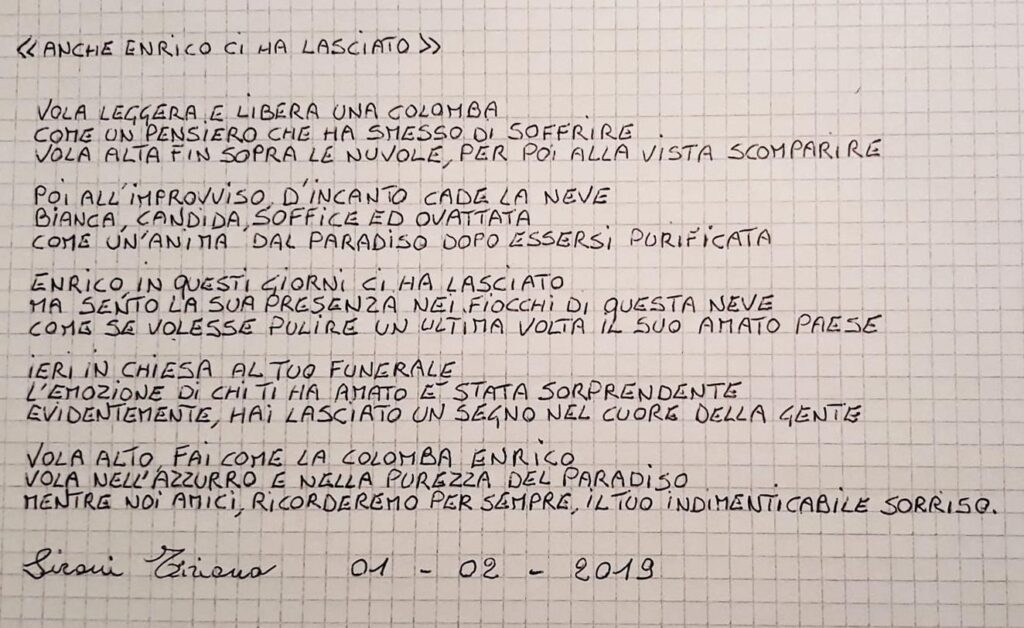 « ANCHE ENRICO CI HA LASCIATO »
VOLA LEGGERA E LIBERA UNA COLOMBA
COME UN PENSIERO CHE HA SMESSO DI SOFFRIRE
VOLA ALTA FIN SOPRA LE NUVOLE, PER POI ALLA VISTA SCOMPARIRE
POI ALL'IMPROVVISO, D'INCANTO CADE LA NEVE
BIANCA, CANDIDA, SOFFICE ED OVATTATA
COME UN'ANIMA DAL PARADISO DOPO ESSERSI PURIFICATA
ENRICO, IN QUESTI GIORNI CI HA LASCIATO
MA SENTO LA SUA PRESENZA NEI FIOCCHI DI QUESTA NEVE
COME SE VOLESSE PULIRE UN ULTIMA VOLTA IL SUO AMATO PAESE
IERI IN CHIESA AL TUO FUNERALE
L'EMOZIONE DI CHI TI HA AMATO E' STATA SORPRENDENTE
EVIDENTEMENTE, HAI LASCIATO UN SEGNO NEL CUORE DELLA GENTE
VOLA ALTO, FAI COME LA COLOMBA ENRICO
VOLA NELL'AZZURRO E NELLA PUREZZA DEL PARADISO
MENTRE NOI AMICI, RICORDEREMO PER SEMPRE, IL TUO INDIMENTICABILE SORRISO.
Sironi Tiziano 01 - 02 - 2019